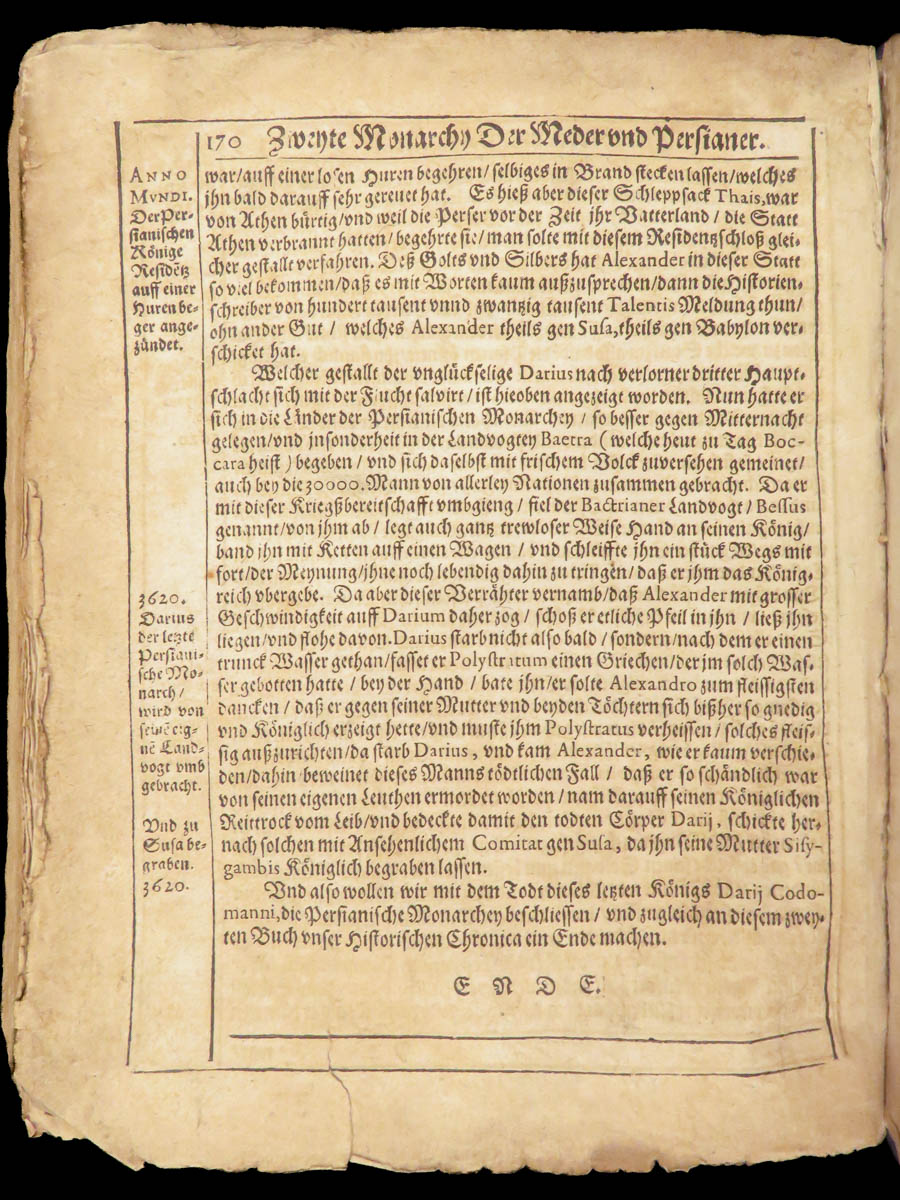 170 Zweyte Monarchy Der Meder vnd Persianer.
ANNO
MVNDI.
Der Per-
sianischen
Könige
Residẽtz
auff einer
Huren be-
ger ange-
zündet.
war/auff einer losen Huren begehren/selbiges in Brand stecken lassen/welches
jhn bald darauff sehr gereuet hat. Es hieß aber dieser Schleppsack Thais,war
von Athen bürtig/vnd weil die Perser vor der Zeit jhr Vatterland/die Statt
Athen verbrannt hatten/begehrte sie/man solte mit diesem Residentzschloß glei-
cher gestallt verfahren. Deß Golts vnd Silbers hat Alexander in dieser Statt
so viel bekommen/daß es mit Worten kaum außzusprechen/dann die Historien-
schreiber von hundert tausent vnnd zwantzig tausent Talentis Meldung thun/
ohn ander Gut / welches Alexander theils gen Susa,theils gen Babylon ver-
schicket hat.
Welcher gestallt der vnglückselige Darius nach verlorner dritter Haupt-
schlacht sich mit der Flucht salvirt/ist hieoben angezeigt worden. Nun hatte er
sich in die Länder der Persianischen Monarchey / so besser gegen Mitternacht
gelegen/vnd jnsonderheit in der Landvogtey Baetra ( welche heut zu Tag Boc-
cara heist ) begeben / vnd sich daselbst mit frischem Volck zuversehen gemeinet/
auch bey die 30000.Mann von allerley Nationen zusammen gebracht. Da er
mit dieser Kriegßbereitschafft vmbgieng / fiel der Bactrianer Landvogt / Bessus
genannt/von jhm ab / legt auch gantz trewloser Weise Hand an seinen König/
band jhn mit Ketten auff einen Wagen / vnd schleiffte jhn ein stück Wegs mit
fort/der Meynung/jhne noch lebendig dahin zu tringen/daß er jhm das König-
reich vbergebe. Da aber dieser Verrähter vernamb/daß Alexander mit grosser
Geschwindigkeit auff Darium daher zog / schoß er etliche Pfeil in jhn / ließ jhn
liegen/vnd flohe davon.Darius starb nicht also bald / sondern/nach dem er einen
trunck Wasser gethan/fasset er Polystratum einen Griechen/der jm solch Was-
ser gebotten hatte / bey der Hand / bate jhn/er solte Alexandro zum fleissigsten
dancken / daß er gegen seiner Mutter vnd beyden Töchtern sich bißher so gnedig
vnd Königlich erzeigt hette/vnd muste jhm Polystratus verheissen / solches fleis-
sig außzurichten/da starb Darius, vnd kam Alexander, wie er kaum verschie-
den/dahin/beweinet dieses Manns tödtlichen Fall / daß er so schändlich war
von seinen eigenen Leuthen ermordet worden / nam darauff seinen Königlichen
Reittrock vom Leib/vnd bedeckte damit den todten Cörper Darij, schickte her-
nach solchen mit Ansehenlichem Comitat gen Susa, da jhn seine Mutter Sisy-
gambis Königlich begraben lassen.
3620.
Darius
der letzte
Persiani-
sche Mo-
narch /
wird von
seinẽ eig-
nẽ Land-
vogt vmb
gebracht.
Vnd zu
Susa be-
graben.
3620.
Vnd also wollen wir mit dem Todt dieses letzten Königs Darij Codo-
manni,die Persianische Monarchey beschliessen / vnd zugleich an diesem zwey-
ten Buch vnser Historischen Chronica ein Ende machen.
E N D E.